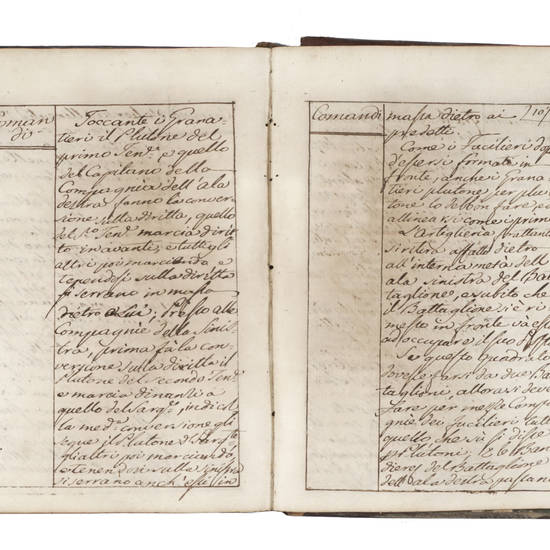 Coman
di
Toccante i Grana-
tieri il Plutone del
primo Tend.e e quello
del Capitano della
Compagnia dell'ala
destra fanno la conver
sione sulla diritta, quello
del S.º Ten.e marcia dirit
to in avanti, e tutti gli
altri poi marciando e
tenendosi sulla diritta
si serrano in massa
dietro a Lui; Presto alle
Compagnie della Sinis
tra, prima fà la con
versione sulla diritta il
Plutone del secondo Ten.e
e marcia dinanti a
quello del Sarg.e, indi ch
la med.e conversione gli
segue il Plutone
gli altri poi marciando,
e tenendosi sulla sinistra
si serrano anch'essi in
Comandi
massa dietro ai
predetti.
Come i Facilieri dop
d'essersi formati in
fronte, anche i Grana
tieri plutone per plu
tone lo debbon fare e
allinearsi come i prim
L'Artiglieria frattanto
si ritira affatto dietro
all'interna metà dell
ala sinistra del Bat
taglione, e subito che
il Battaglione s'è ri
messo in fronte va es
ad occupare il suo posto
Se questo quadrato
dovesse farsi da due Ba
taglioni, allora si dev
fare per mezze Comp
gnie dei Facilieri tutt
quello che su si disse
pi Plutoni; E le Ban
diere del Battaglione
dell'ala destra passan